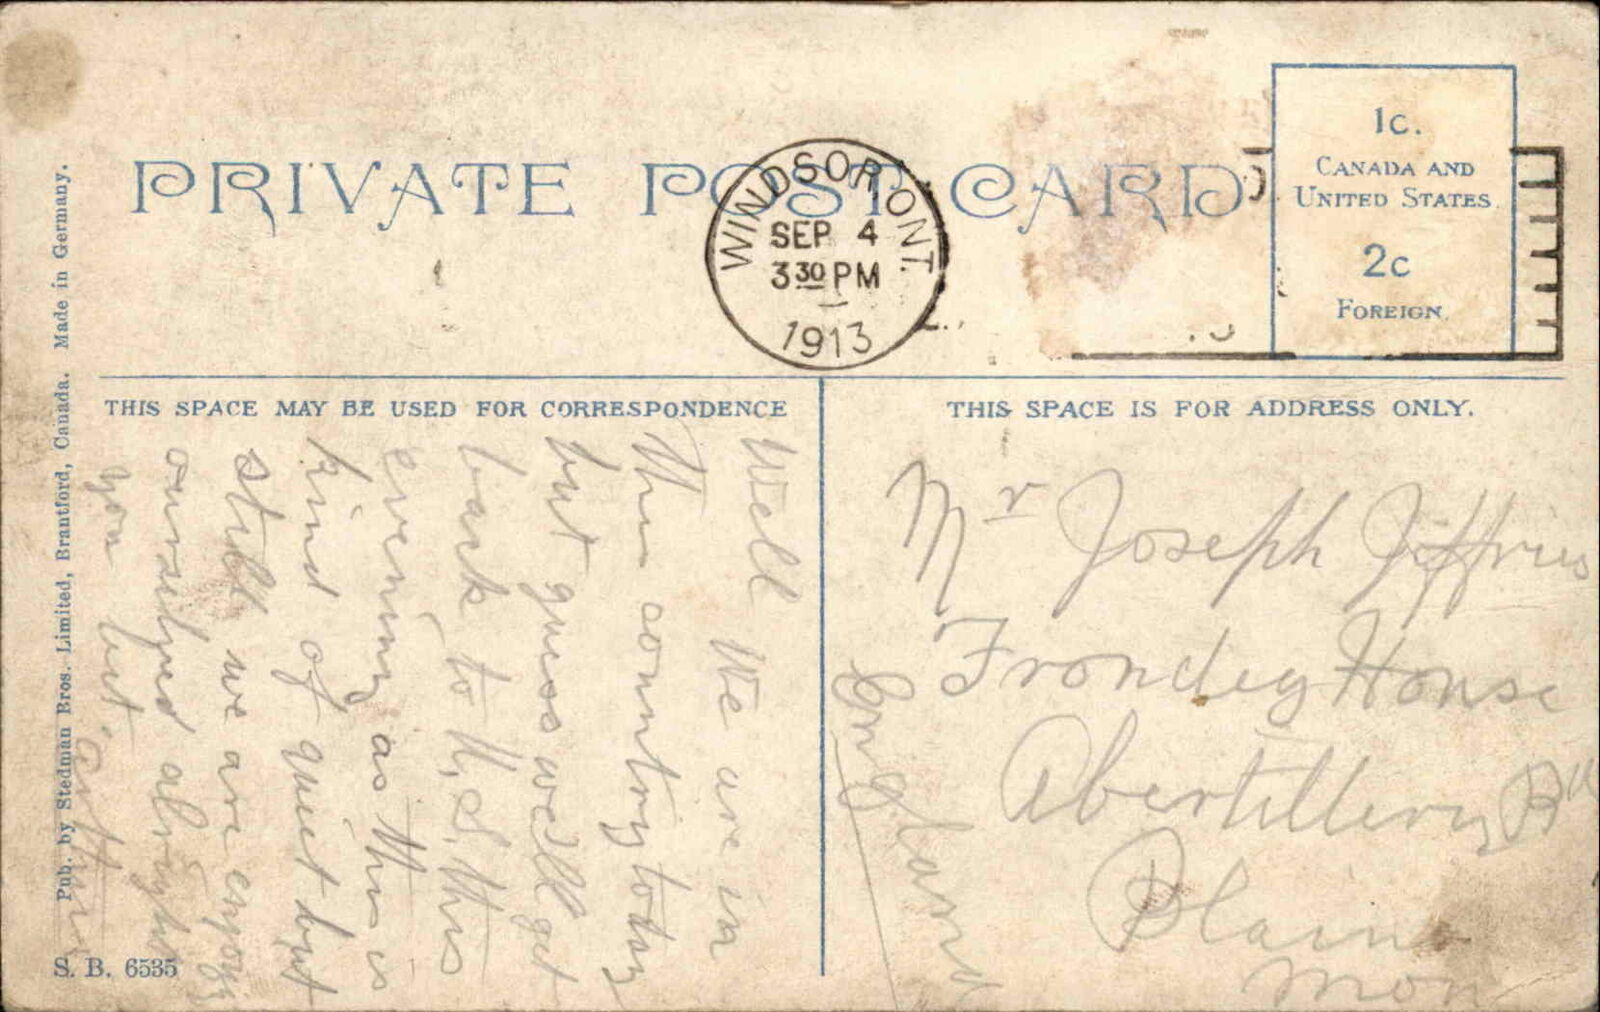 PRIVATE POST CARD
WINDSOR, ONT.
SEP 4
3 30 PM
1913
1c.
CANADA AND
UNITED STATES
2c
FOREIGN.
THIS SPACE MAY BE USED FOR CORRESPONDENCE
THIS SPACE IS FOR ADDRESS ONLY.
Well We are in
this country today
but guess well get
back to U.S. this
evening as this is
kind of quiet but
still we are enjoyng
ourselves alright
you bet. Arthur
Mr Joseph Jeffries
Frondeg House
Abertillery
Blaina
Mon
England
Pub. by Stedman Bros. Limited, Brantford, Canada. Made in Germany.
S. B. 6535